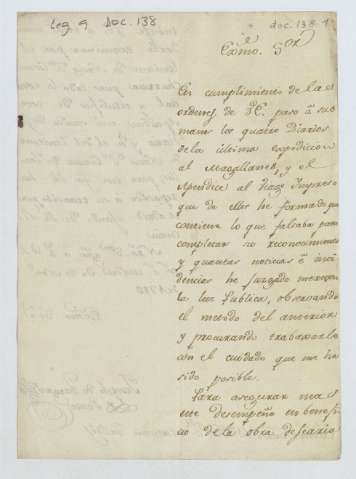 Leg 9 Doc. 138
doc. 138-1
Exmo. Sor
En cumplimiento de las
ordenes de VE. paso â sus
manos los quatro Diarios
de la ultima expedicion
al Magallanes, y el
Apendice al Viage Impreso
que de ellos he formado que
contiene lo que faltaba para
completar su reconocimiento
y quantas noticias è inci
dencias he juzgado merezcan
la luz publica, observando
el metodo del anterior
y procurando trabaxarlo
con el cuidado que me ha
sido posible.
Para asegurar mas
este desempeño en benefi
cio de la obra desearia